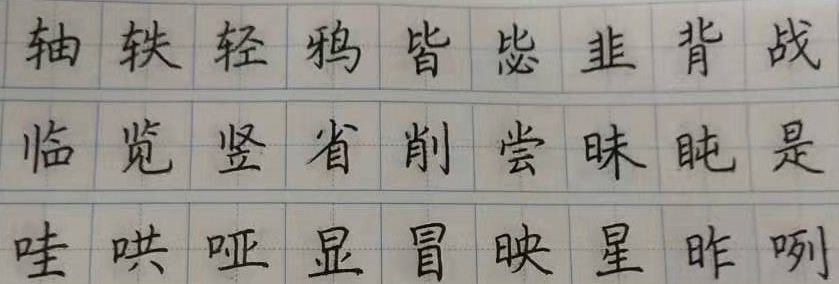 轴轶轻鸦皆毖韭背战
临览竖省削尝昧盹是
哇哄哑显冒映星昨咧